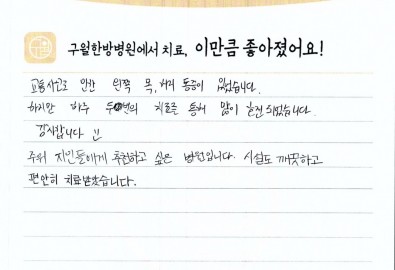 구월한방병원에서 치료, 이만큼 좋아졌어요!
교통사고로 인한 왼쪽 목, 허리 통증이 있었습니다.
하지만 매주 두번의 치료를 통해 많이 호전 되었습니다.
감사합니다 :)
주위 지인들에게 추천하고 싶은 병원입니다. 시설도 깨끗하고
편안히 치료받았습니다.